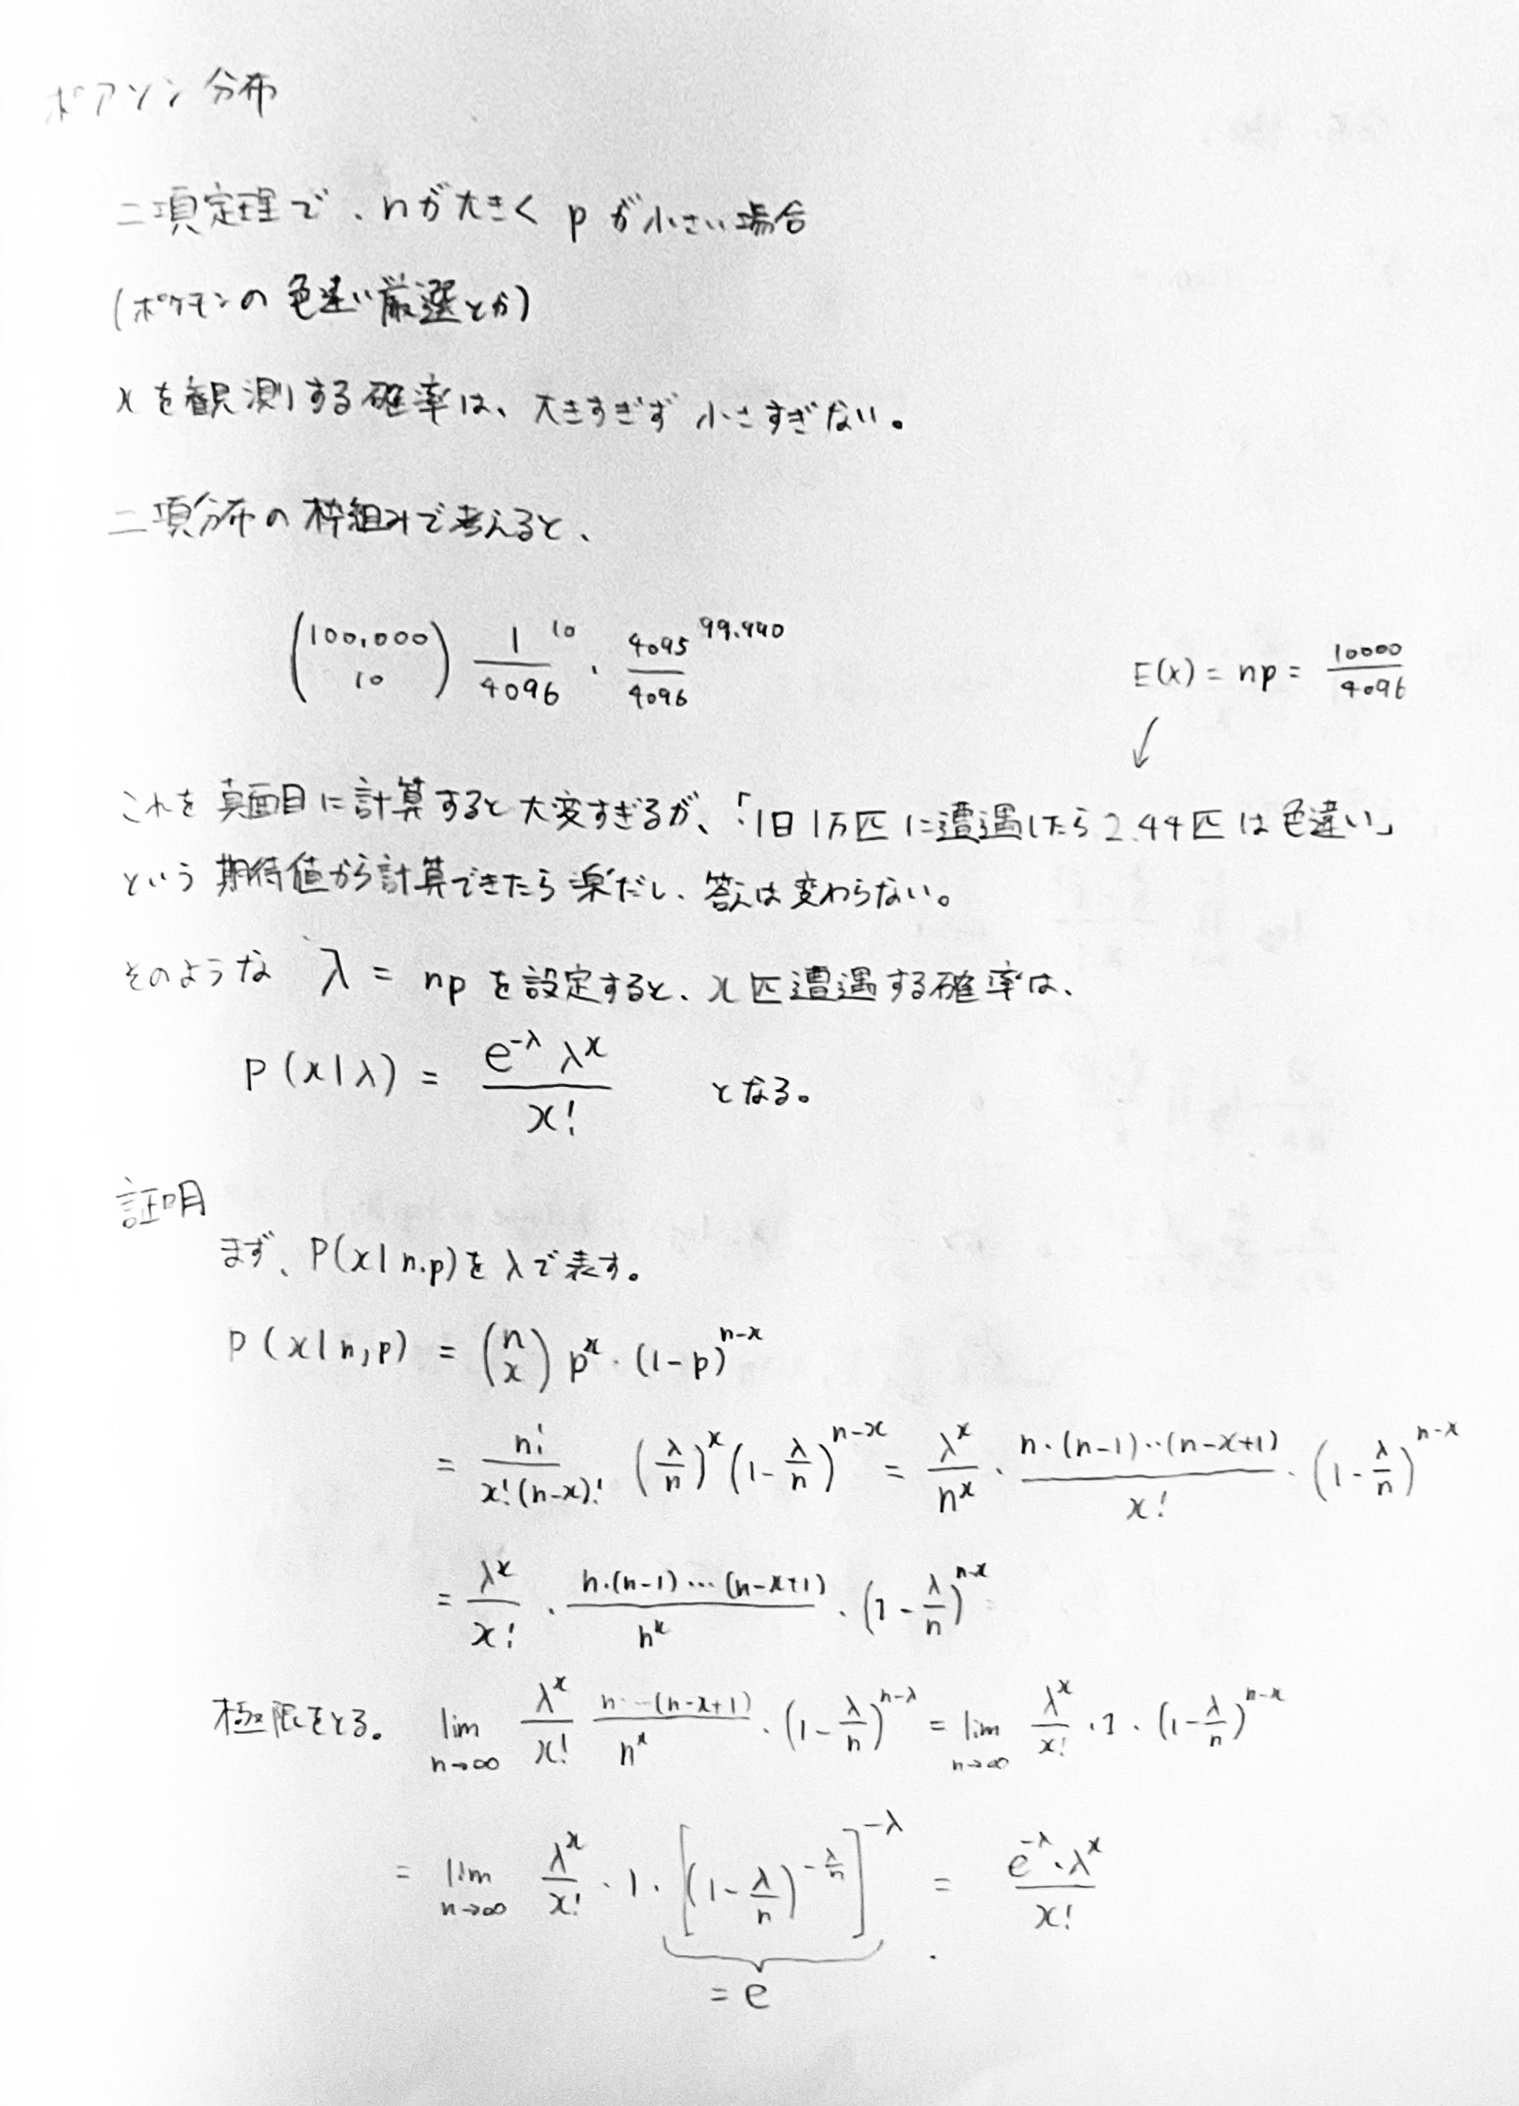 ポアソン分布
二項定理で、nが大きくpが小さい場合
(ポケモンの色違い厳選とか)
xを観測する確率は、大きすぎず小さすぎない。
二項分布の枠組みで考えると、
(100,000 10) 1/4096^10 · 4095/4096^99.990
E(x) = np = 10000/4096
↙
これを真面目に計算すると大変すぎるが、「1日1万匹に遭遇したら2.44匹は色違い」
という期待値から計算できたら楽だし、答えは変わらない。
そのような λ = np を設定すると、x匹遭遇する確率は、
P(x|λ) = e^{-λ} λ^x / x! となる。
証明
まず、P(x|n.p)をλで表す。
P(x|n,p) = (n x) p^x · (1-p)^{n-x}
= n!/x!(n-x)! (λ/n)^x (1-λ/n)^{n-x} = λ^x/n^x · n·(n-1)··(n-x+1)/x! · (1-λ/n)^{n-x}
= λ^x/x! · n·(n-1)···(n-x+1)/n^x · (1-λ/n)^{n-x}
極限をとる。 lim n→∞ λ^x/x! n···(n-x+1)/n^x · (1-λ/n)^{n-λ} = lim n→∞ λ^x/x! · 1 · (1-λ/n)^{n-x}
= lim n→∞ λ^x/x! · 1 · [(1-λ/n)^{-λ/n}]^{-λ} = e^{-λ}·λ^x / x!
= e